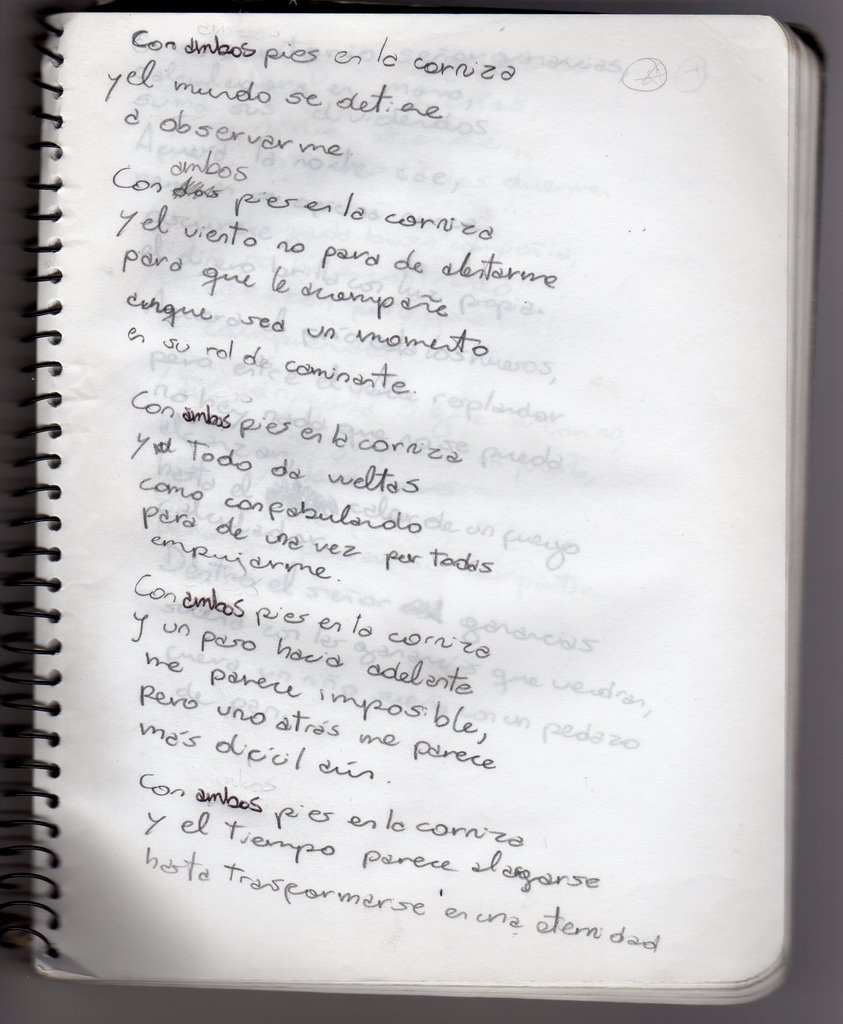 Con ambos pies en la corniza
y el mundo se detiene
a observarme.
ambos
Con dos pies en la corniza
y el viento no para de alentarme
para que le acompañe
aunque sea un momento
en su rol de caminante.
Con ambos pies en la corniza
y Todo da vueltas
como confabulando
para de una vez por todas
empujarme.
Con ambos pies en la corniza
y un paso hacia adelante
me parece imposible,
pero uno atrás me parece
más difícil aún.
Con ambos pies en la corniza
y el tiempo parece alargarse
hasta trasformarse en una eternidad